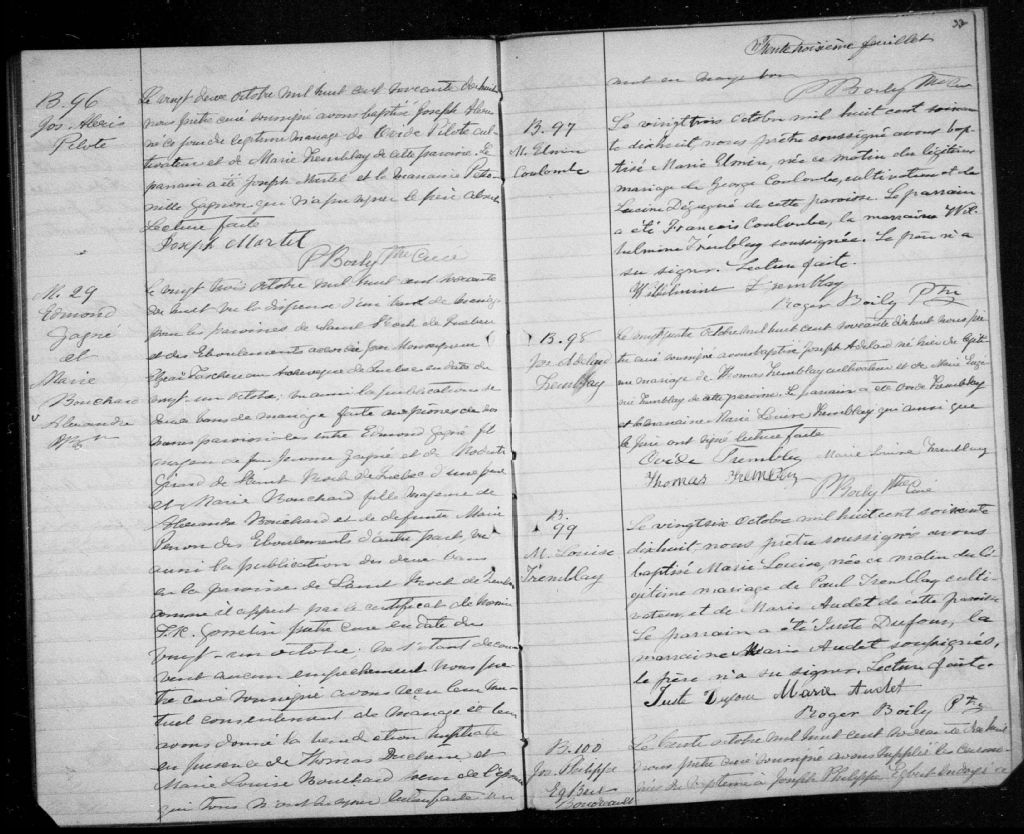 B. 96
Jos. Alexis
Pilote
Le vingt deux octobre mil huit cent soixante dix huit
nous prêtre curé soussigné avons baptisé Joseph Alexis
né ce jour du légitime mariage de Pilote cul
tivateur et de Marie Tremblay de cette paroisse. Le
parrain a été Joseph Martel et la marraine Pétro
nille Gagnon qui n'a pu signer le père absent
Lecture faite
Joseph Martel
P Boily Ptre Curé
M. 29
Edmond
Gagné
et
Marie
Bouchard
Alexandre
Le vingt trois octobre mil huit cent soixante
dix huit vu la dispense d'un banc de mariage
pour les paroisses de Saint Roch de Québec
et des Eboulements accordée par Monseigneur
Elzéar Taschereau Archevêque de Québec en date du
vingt-un octobre, vu aussi la publication de
deux bans de mariage faite aux prônes de nos
messes paroissiales entre Edmond Gagné fils
majeur de feu Jérome Gagné et de Modeste
Girard de Saint Roch de Québec d'une part
et Marie Bouchard fille majeure de
Alexandre Bouchard et de défunte Marie
Perron des Eboulements d'autre part, vu
aussi la publication des deux bans
en la paroisse de Saint Roch de Québec
comme il appert par le certificat de
Gosselin prêtre curé en date du
vingt-un octobre. Ne s'étant décou
vert aucun empêchement nous prê
tre curé soussigné avons reçu leur mu
tuel consentement de mariage et leur
avons donné la bénédiction nuptiale
en présence de Thomas Duchêne et
Marie Louise Bouchard soeur de l'épouse
qui tous n'ont su signer lecture faite un
33
Trente troisième feuillet
mot en marge bon
P Boily Ptre Cu
B. 97
M. Elmin
Coulombe
Le vingt trois octobre mil huit cent soixan
te dixhuit nous prêtre soussigné avons bap
tisé Marie Elmire, née ce matin du légitime
mariage de George Coulombe, cultivateur et de
Lucine Dégagné de cette paroisse. Le parrain
a été François Coulombe, la marraine Wil
helmine Tremblay soussignée. Le père n'a
su signer. Lecture faite.
Wilhelmine Tremblay
Roger Boily Ptre
B. 98
Jos Adélard
Tremblay
Le vingt quatre octobre mil huit cent soixante dix huit nous prê
tre curé soussigné avons baptisé Joseph Adélard né hier du légiti
me mariage de Thomas Tremblay cultivateur et de Marie
Tremblay de cette paroisse. Le parrain a été Ovide Tremblay
et la marraine Marie Louise Tremblay qui ainsi que
le père ont signé lecture faite
Ovide Tremblay Marie Louise Tremblay
Thomas Tremblay
P Boily Ptre Curé
B.
99
M. Louise
Tremblay
Le vingt six octobre mil huit cent soixante
dixhuit nous prêtre soussigné avons
baptisé Marie Louise, née ce matin du lé
gitime mariage de Paul Tremblay culti
vateur, et de Marie Audet de cette paroisse
Le parrain a été Juste Dufour, la
marraine Marie Audet soussignés,
le père n'a su signer. Lecture faite.
Juste Dufour Marie Audet
Roger Boily Ptre
B. 100
Jos. Philippe
Egbert
Le trente octobre mil huit cent soixante dix huit
nous prêtre curé soussigné avons suppléé les cérémo
nies du baptême à Joseph Philippe Egbert